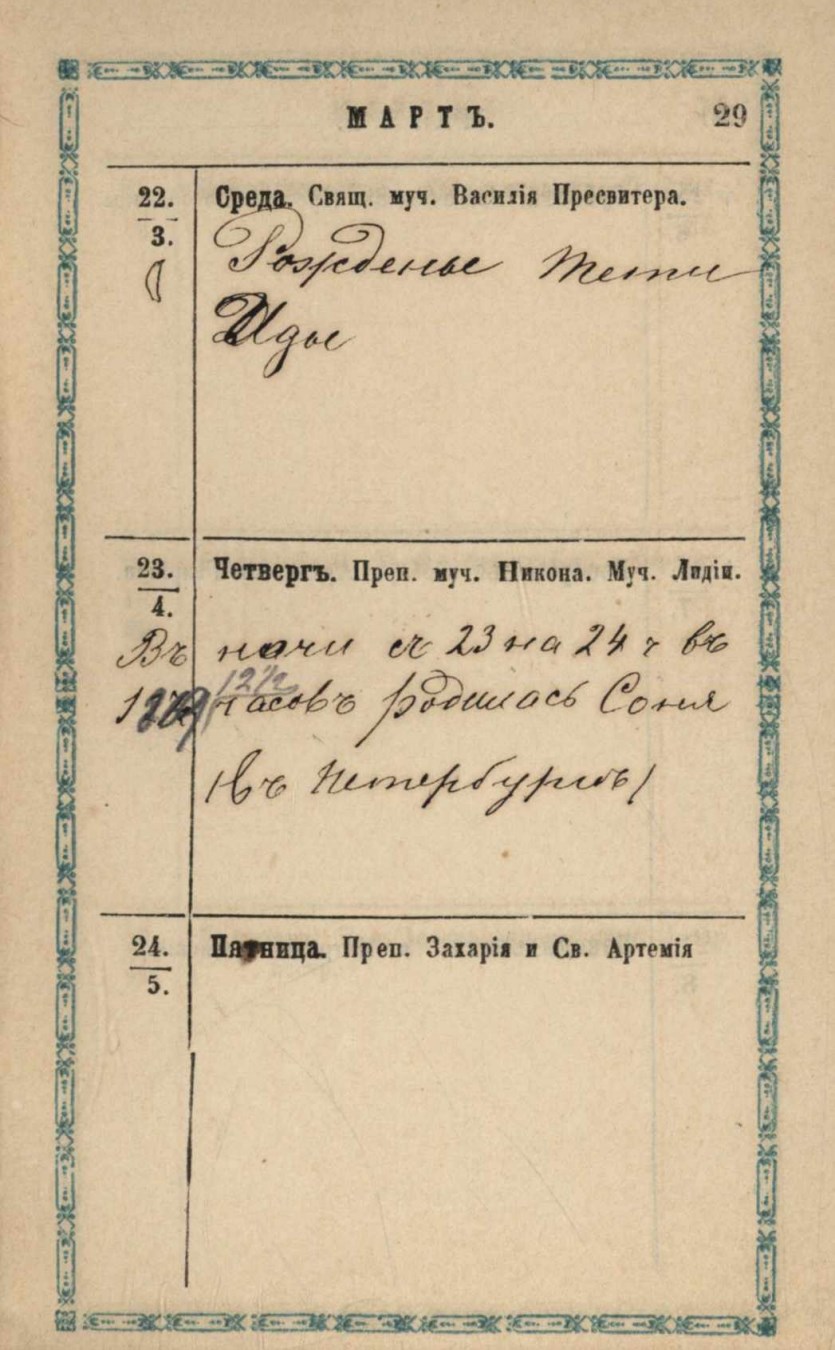 МАРТЪ. 29
22. Среда. Свящ. муч. Василія Пресвитера.
3.
Рожденье тети
Иды
23. Четвергъ. Преп. муч. Никона. Муч. Лидіи.
4.
Въ ночи съ 23 на 24 въ
12½
часовъ родилась Соня
(въ Петербургѣ)
24. Пятница. Преп. Захарія и Св. Артемія
5.